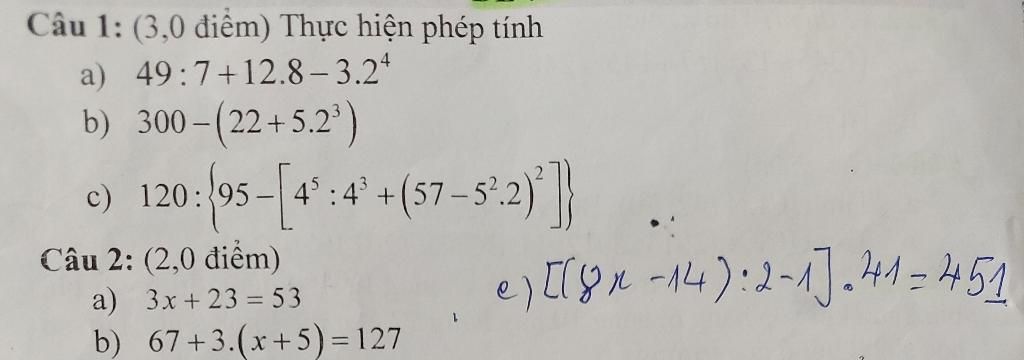 Câu 1: (3,0 điểm) Thực hiện phép tính
a) 49 : 7 + 12.8 – 3.2⁴
b) 300 – (22 + 5.2³)
c) 120 : {95 – [4⁵ : 4³ + (57 – 5².2)²]}
Câu 2: (2,0 điểm)
a) 3x + 23 = 53
b) 67 + 3.(x + 5) = 127
e) [(8x – 14) : 2 – 1] . 41 = 451